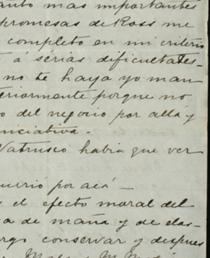 anto mas importantes
promesas de Ross me
completo en mi criterio
t a serias dificultades-
no te haya yo man
teriormente porque no
o del negocio por allá y
nciativa.
habia que ver
uirio por acá—
y el efecto moral del
a de maña y de elas-
rgo conservar y despues